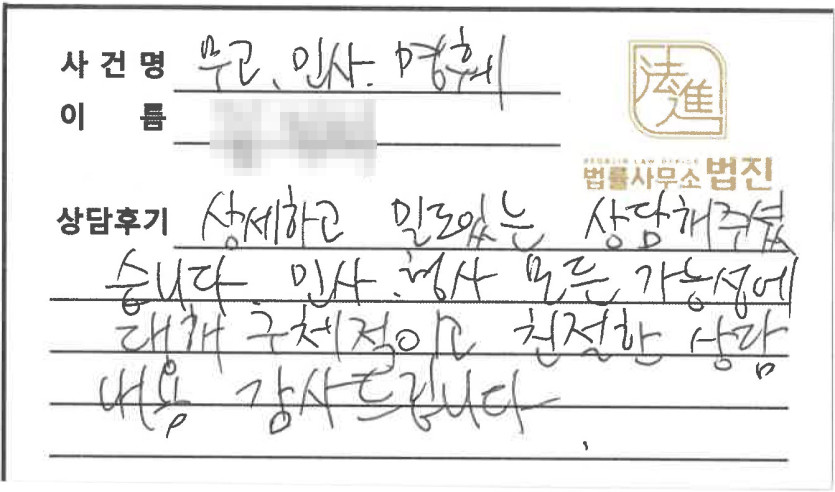 사건명 무고, 민사. 명훼
이 름
法進
BEOBJIN LAW OFFICE
법률사무소 법진
상담후기 상세하고 밀도있는 상담해주셨
습니다. 민사.형사 모든 가능성에
대해 구체적이고 친절한 상담
내용 감사드립니다.